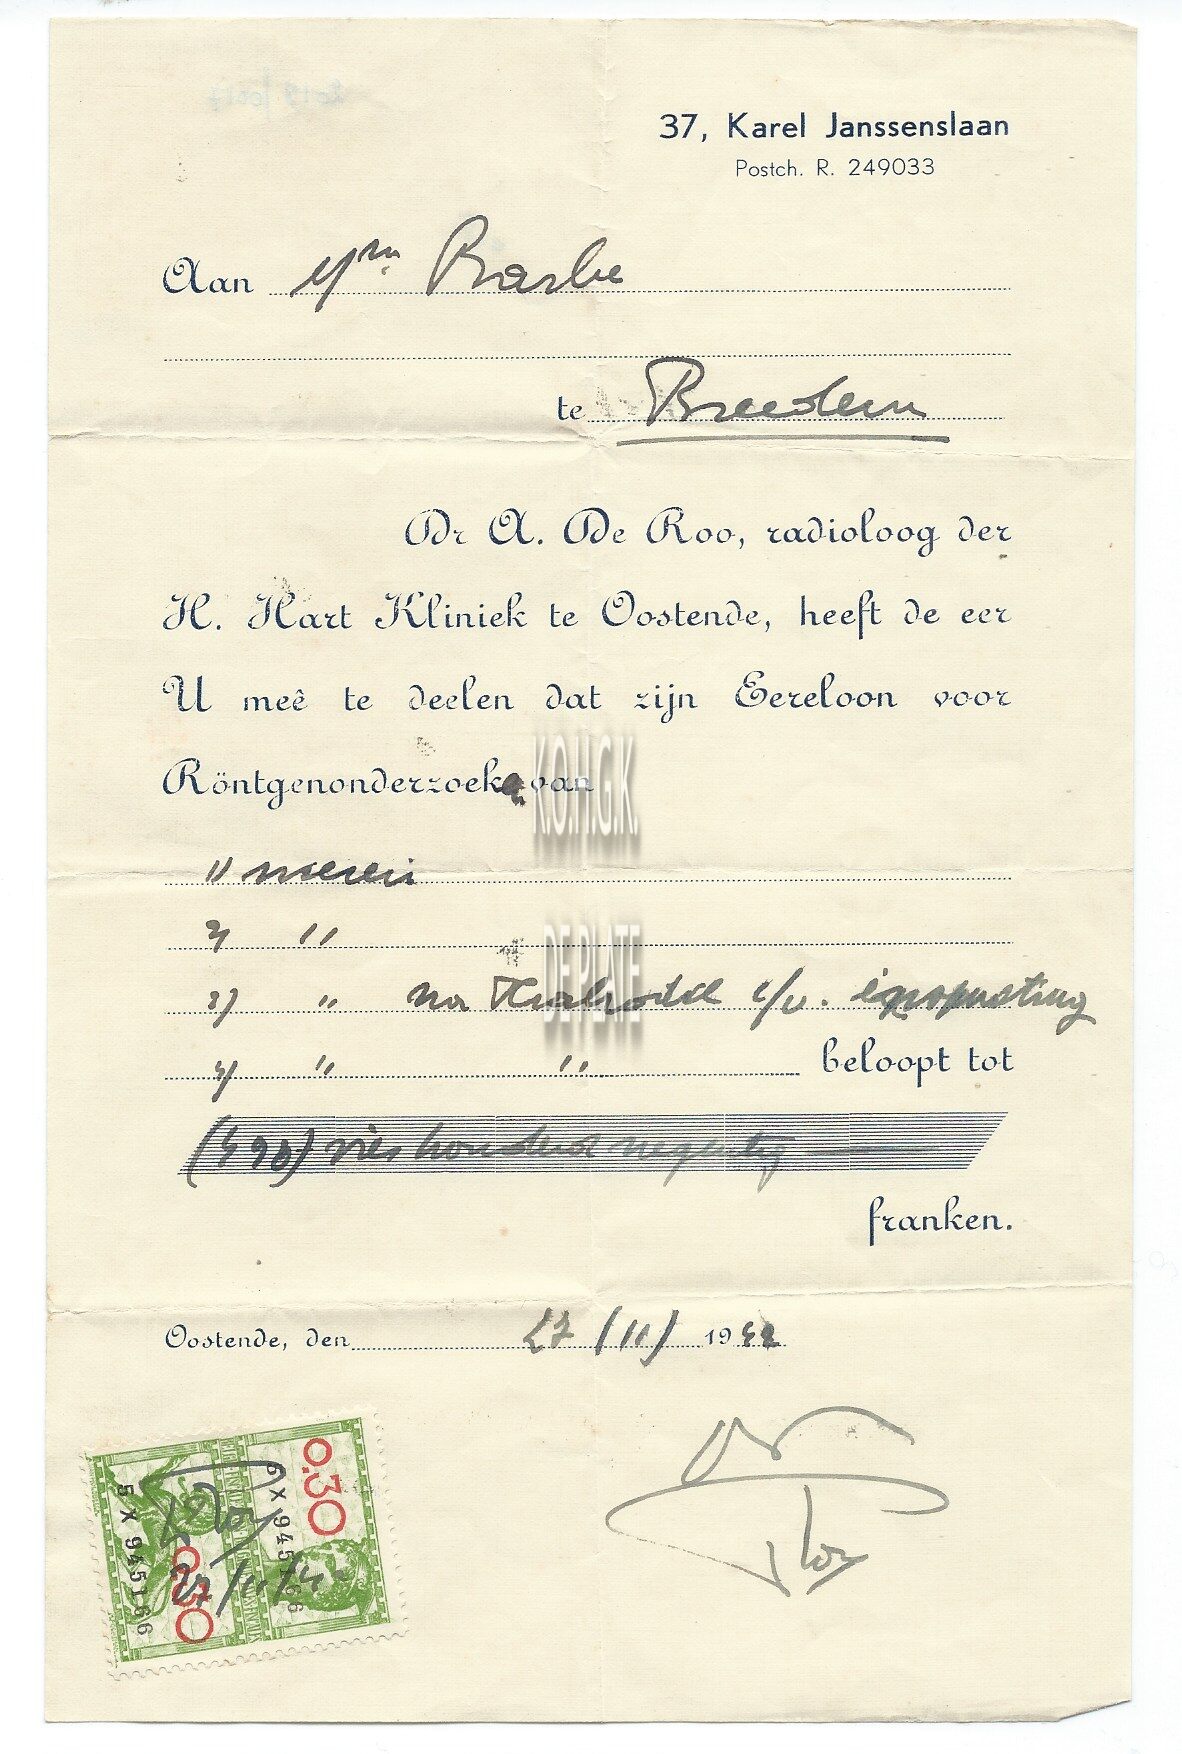 37, Karel Janssenslaan
Postch. R. 249033
Aan Mr Barbe
te Breedene
Dr A. De Roo, radioloog der
H. Hart Kliniek te Oostende, heeft de eer
U meê te deelen dat zijn Eereloon voor
Röntgenonderzoek van
K.O.H.G.K.
1) nieren
2) "
DE PLATE
3) " na i/v. inspuiting
4) " " beloopt tot
(490) vierhonderd negentig
franken.
Oostende, den 27/11/1942
0.30
5 X 945166
0.30
5 X 945166
27/11/42